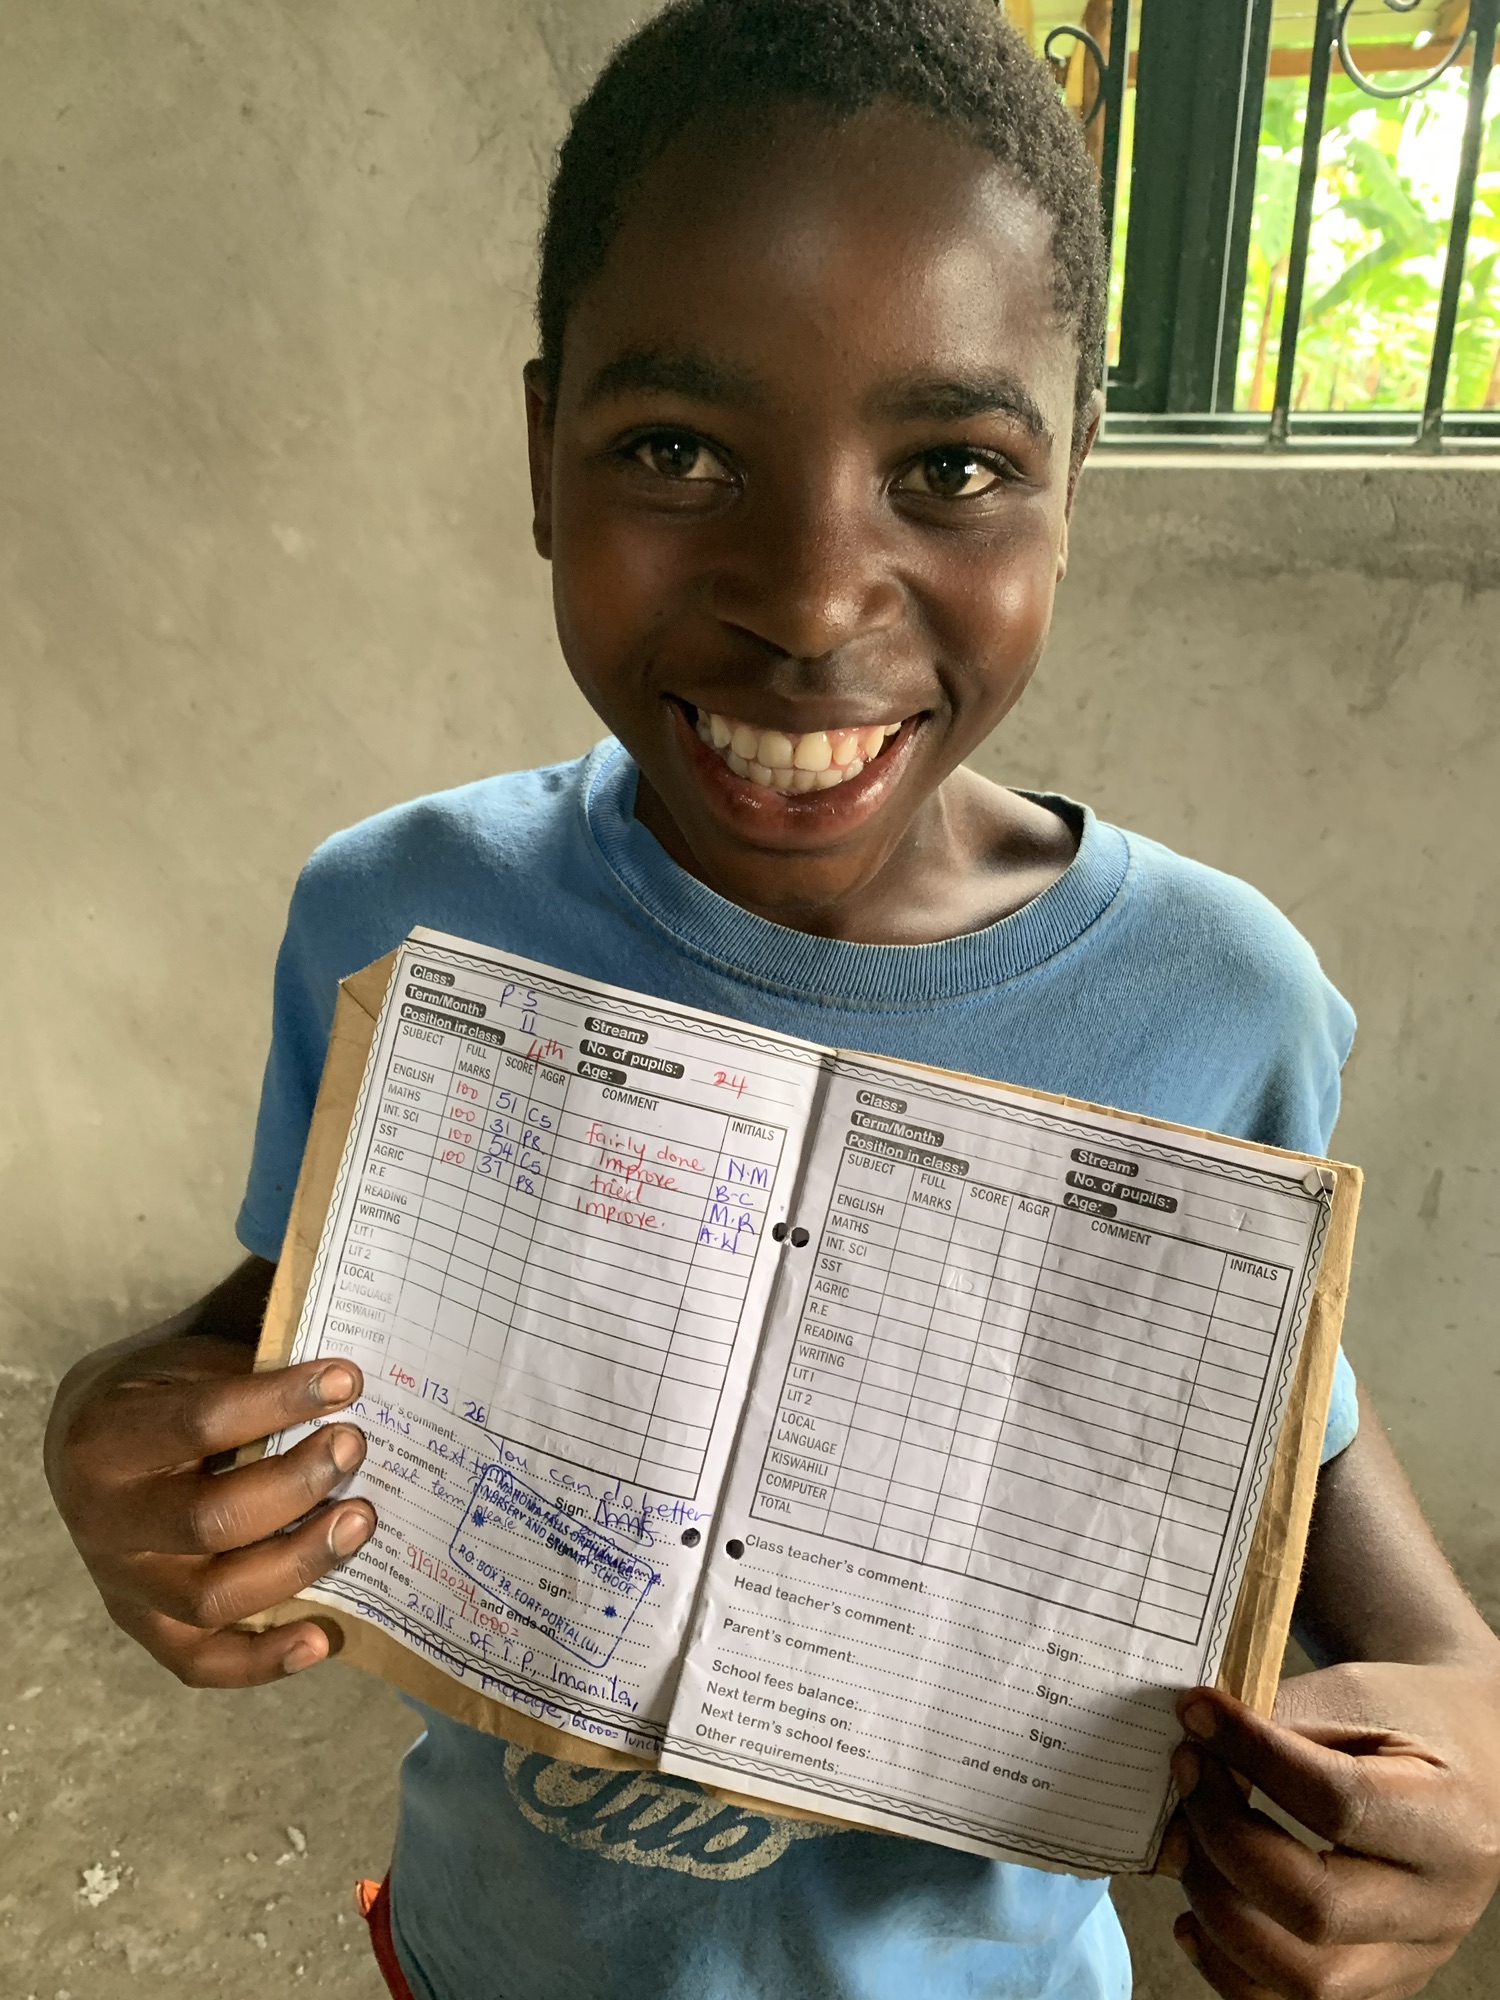 Class: P.5
Term/Month: II Stream:
Position in class: 4th No. of pupils: 24
Age:
SUBJECT FULL MARKS SCORE AGGR COMMENT INITIALS
ENGLISH 100 51 C5 Fairly done N.M
MATHS 100 31 P8 Improve B-C
INT. SCI 100 54 C5 tried M.R
SST 100 37 P8 Improve. A.K
AGRIC
R.E
READING
WRITING
LIT 1
LIT 2
LOCAL LANGUAGE
KISWAHILI
COMPUTER
TOTAL 400 173 26
teacher's comment: You can do better
in this next term Sign:
teacher's comment:
next term please Sign:
comment: Sign:
MAHOMA FALLS ORPHANAGE
NURSERY AND PRIMARY SCHOOL
P.O. BOX 38, FORT-PORTAL (U)
balance:
ns on: 9/9/2024 and ends on:
school fees: 77000=
uirements: 2 rolls of T.P, 1manila,
5000= holiday package, 65000= lunch
Class:
Term/Month: Stream:
Position in class: No. of pupils:
Age:
SUBJECT FULL MARKS SCORE AGGR COMMENT INITIALS
ENGLISH
MATHS
INT. SCI
SST
AGRIC
R.E
READING
WRITING
LIT 1
LIT 2
LOCAL LANGUAGE
KISWAHILI
COMPUTER
TOTAL
Class teacher's comment:
Sign:
Head teacher's comment:
Sign:
Parent's comment:
Sign:
School fees balance:
Next term begins on: and ends on:
Next term's school fees:
Other requirements:
Club